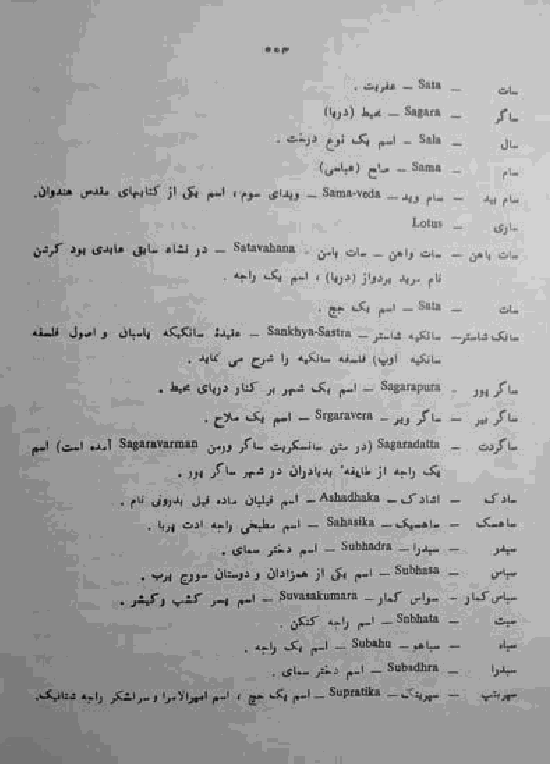 ۵۵۳
سات — Sata — عفریت .
ساگر — Sagara — محیط (دریا)
سال — Sala — اسم یک نوع درخت .
سام — Sama — صلح (عباسی)
سام بید — سام وید — Sama-veda — ویدای سوم، اسم یکی از کتابهای مقدس هندوان.
Lotus
سات باهن — سات واهن — سات باسن . Satavahana — در نشاه سابق عابدی بود کردن
نام مرید بردواز (دریا) ، اسم یک راجه .
سات — Sata — اسم یک جج .
سانک شاستر — سانکیه شاستر — Sankhya-Sastra — عقیدهٔ سانکیکه پاسبان و اصول فلسفه
سانکیه اوپ) فلسفه سانکیه را شرح می نماید .
ساگر پور - Sagarapura — اسم یک شهر بر کنار دریای محیط .
ساگر بیر — ساگر ویر — Srgaravera — اسم یک ملاح .
ساگردت — Sagaradatta (در متن سانسکریت ساگر ورمن Sagaravarman آمده است) اسم
یک راجه از طایفهٔ بدیادران در شهر ساگر پور .
سادک — اشادک — Ashadhaka — اسم فیلبان ماده فیل بدرونی نام .
ساهسک — ساهسیک — Sahasika — اسم مطبخی راجه ادت پربا .
سبدر — سبدرا — Subhadra — اسم دختر سمای .
سباس — Subhasa — اسم یکی از همزادان و دوستان سورج پرب .
سباس کمار — سواس کمار — Suvasakumara — اسم پسر کشب رکیشر .
سبت — Subhata — اسم راجه کتکن .
سباه — سباهو — Subahu — اسم یک راجه .
سبدرا — Subadhra — اسم دختر سمای .
سپریتپ — سپریتک — Supratika — اسم یک جج ، اسم امیرالامرا و سرلشکر راجه شتانیک.